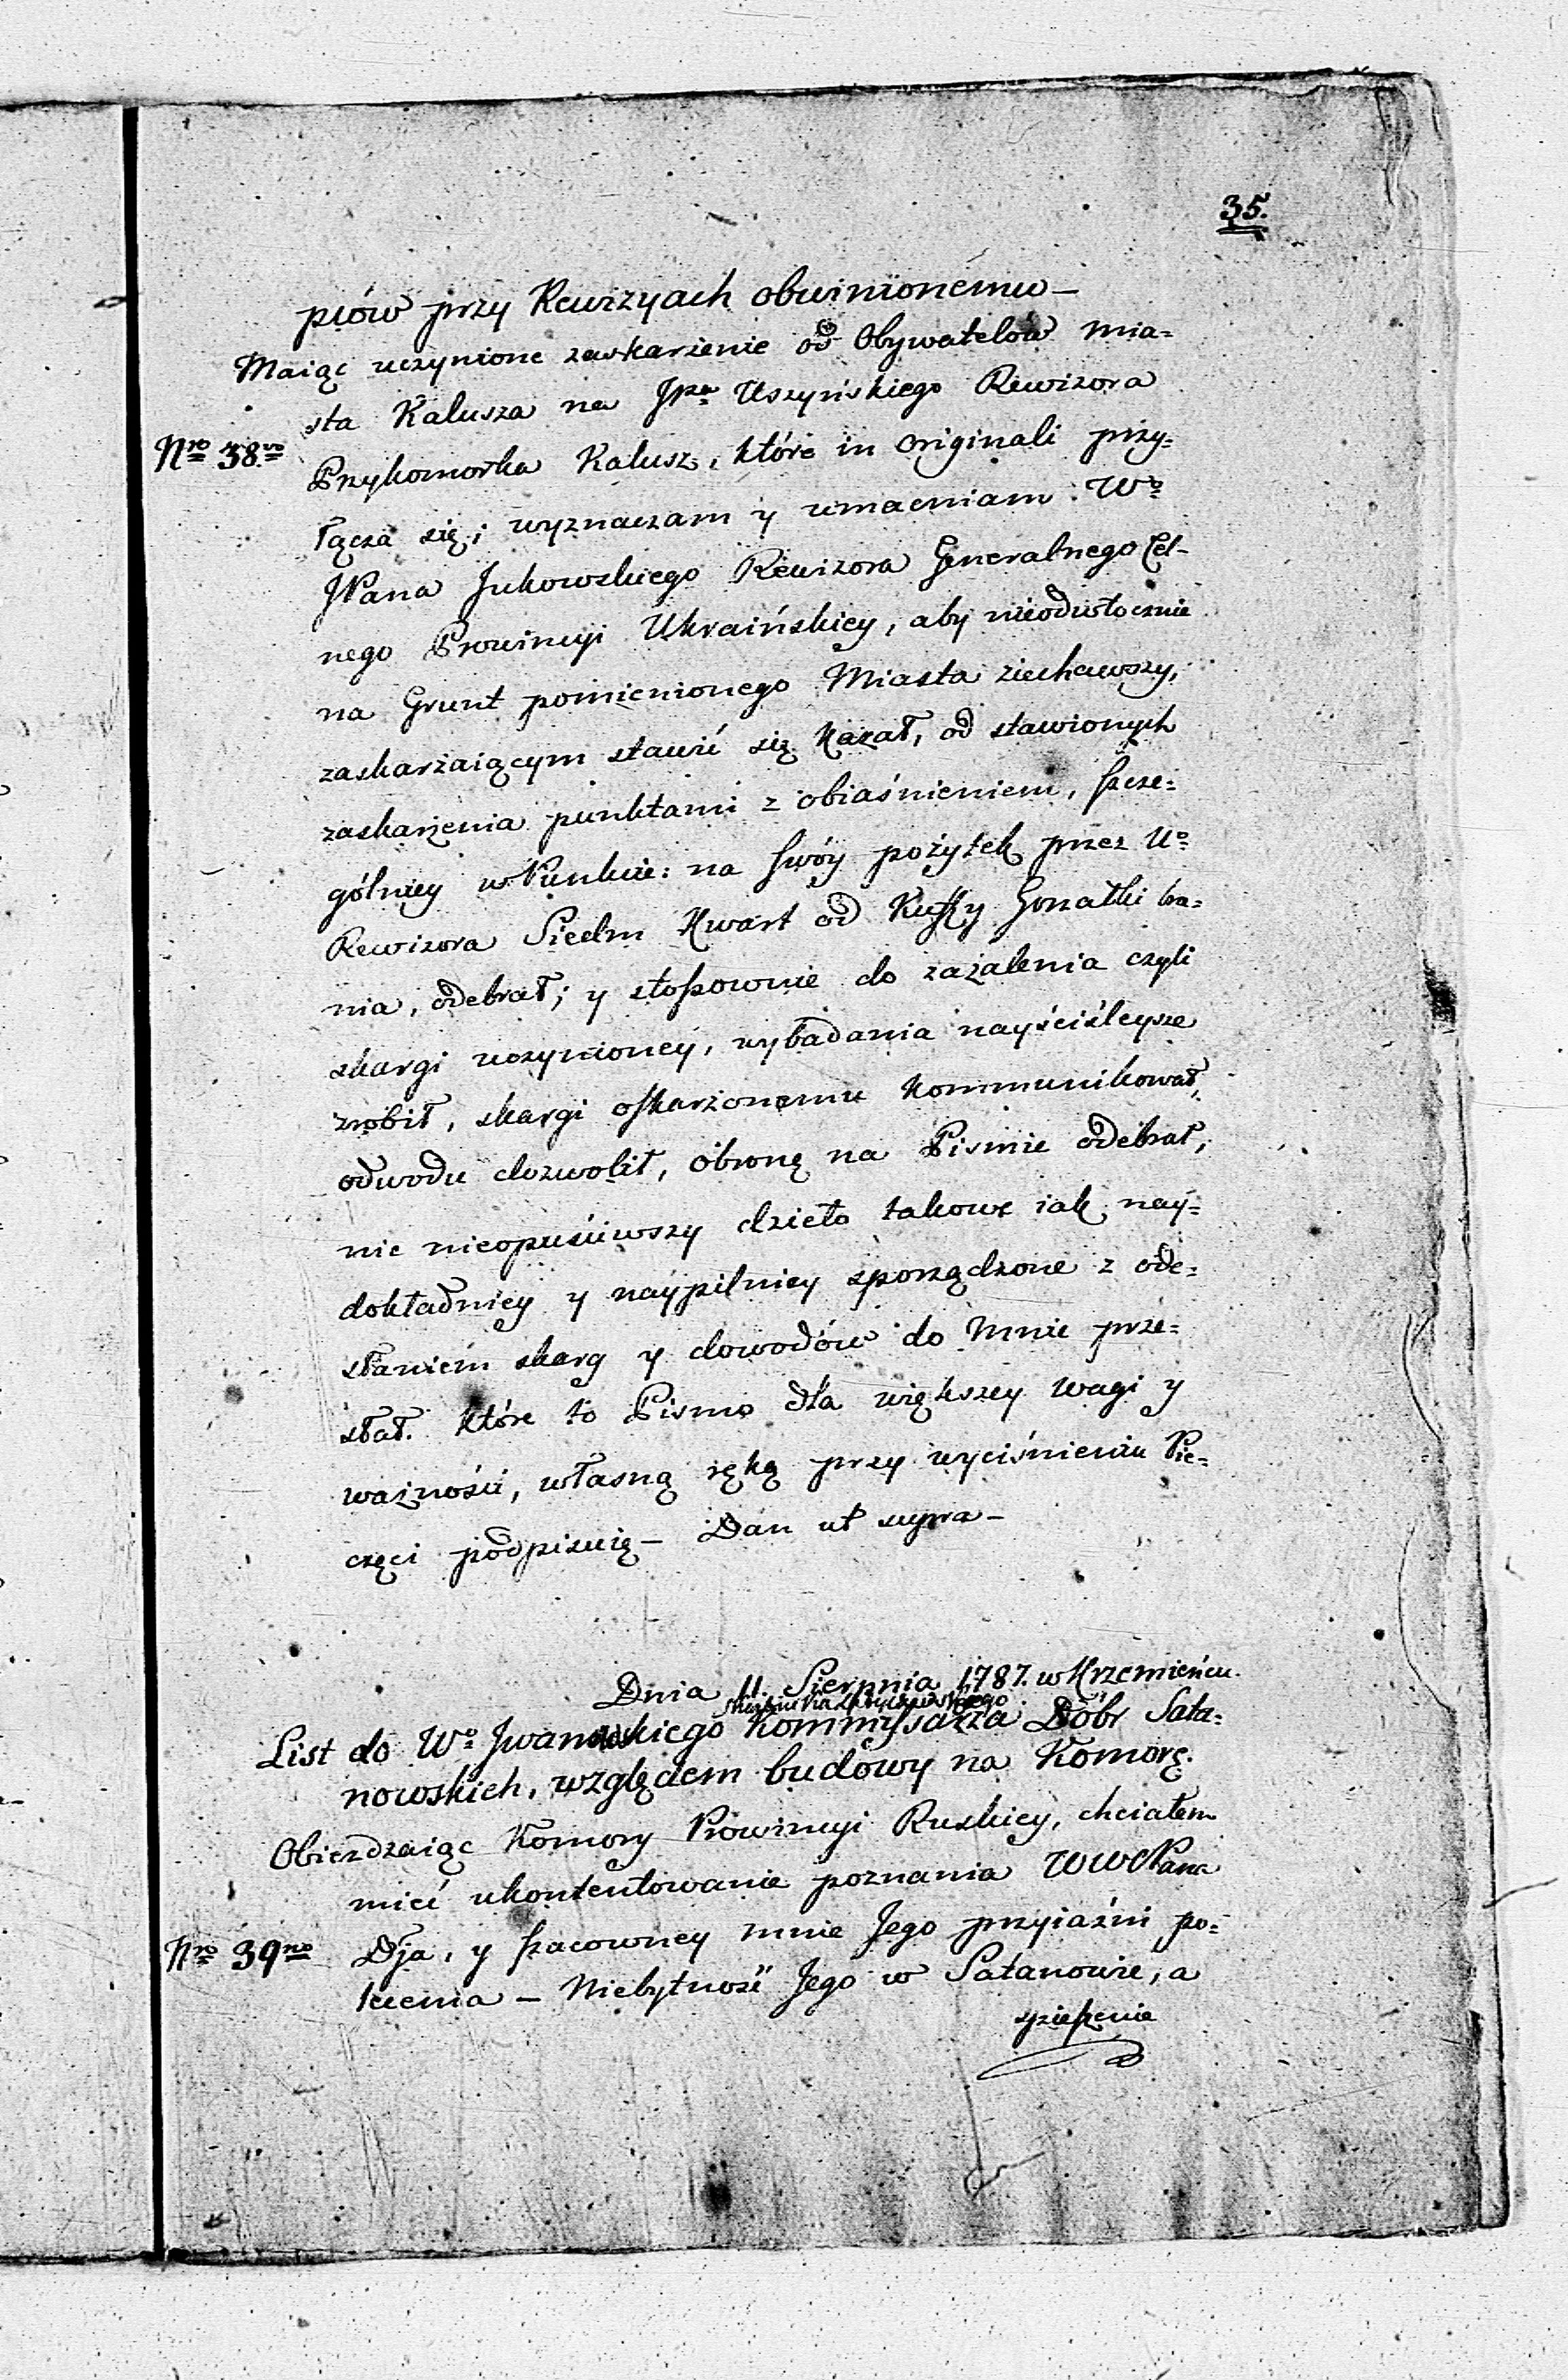 35.
piów przy Rewizyach obwinionému —
Maiąc uczynione zaskarżenie od Obywatelów Mia=
sta Kalusza na JPa Uszyńskiego Rewizora
Nro 38vo
Przykomorka Kalusz, które in originali przy=
łącza się; wyznaczam y umacniam Wo
JPana Jukowskiego Rewizora Generalnego Cel-
nego Prowincyi Ukraińskiey, aby nieodwłocznie
na Grunt pomienionego Miasta ziechawszy,
zaskarżaiącym stawić się kazał, od stawionych
zaskarżenia punktami z obiaśnieniem, szcze=
gólniey w Punkcie: na swóy pożytek przez Uo
Rewizora Siedm Kwart od Kuffy Gorzałki bra=
nia, odebrał; y stosownie do zażalenia czyli
skargi uczynioney, wybadania nayściśleysze
zrobił, skargi oskarżonemu kommunikował,
odwodu dozwolił, obronę na Piśmie odebrał,
nic nieopuściwszy dzieło takowe iak nay=
dokładniey y naypilniey sporządzone z ode=
słaniem skarg y dowodów do Mnie prze=
słał. Które to Pismo dla większey wagi y
ważności, własną ręką przy wyciśnieniu Pie=
częci podpisuię — Dan ut supra —
Dnia 11. Sierpnia 1787. w Krzemieńcu.
List do Wo Iwanowskiego Kommissarza Dóbr Sata=
nowskich, względem budowy na Komorę.
Obierdzaiąc Komory Prowincyi Ruskiey, chciałem
mieć ukontentowanie poznania WWcPana
Nro 39no
Dja, y szacowney mnie Jego przyiaźni po=
lecenia — Niebytność Jego w Satanowie, a
spieszenie